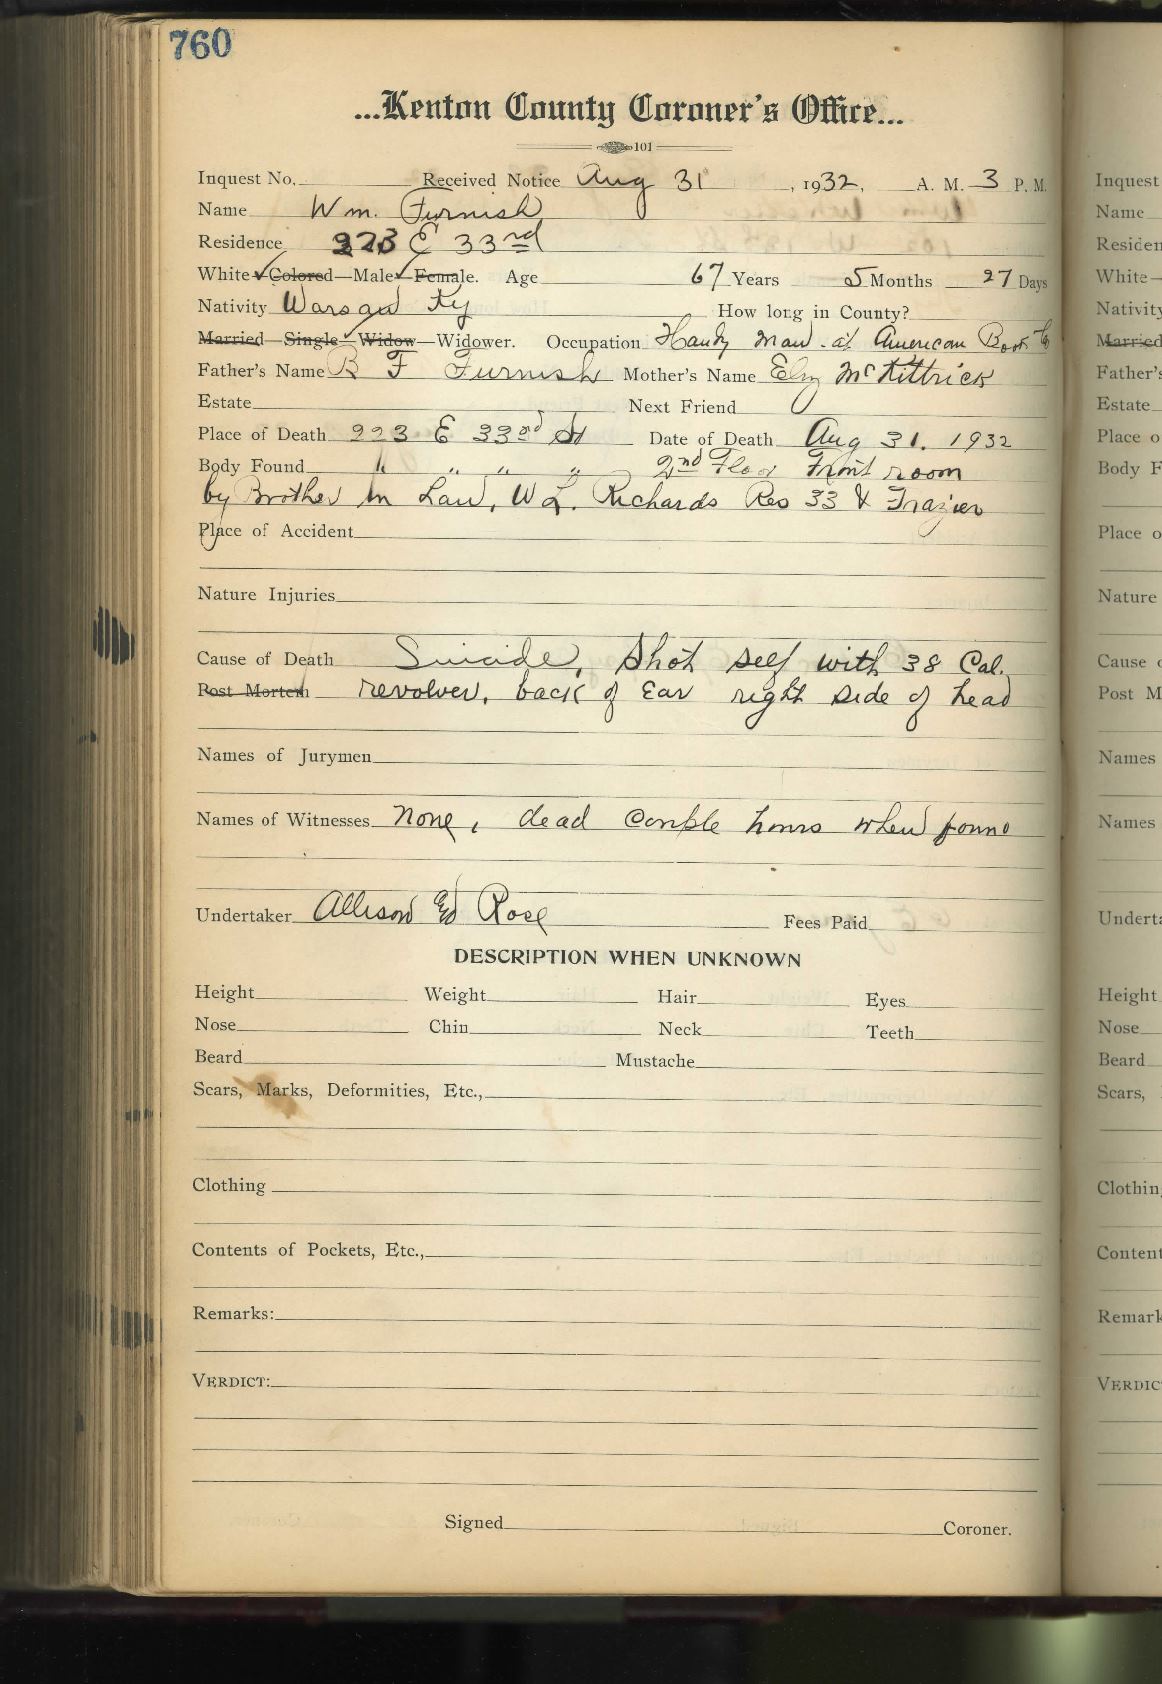 760
...Kenton County Coroner's Office...
101
Inquest No. Received Notice Aug 31, 1932, A. M. 3 P. M.
Name Wm. Furnish
Residence 223 E 33rd
White ✓ Colored—Male ✓ Female. Age 67 Years 5 Months 27 Days
Nativity Warsaw Ky How long in County?
Married—Single—Widow—Widower. Occupation Handy man at American Book Co
Father's Name B F Furnish Mother's Name McKittrick
Estate Next Friend
Place of Death 223 E 33rd St Date of Death Aug 31. 1932
Body Found " " " " 2nd Floor Front room
by Brother in Law, W L. Richards Res 33 & Frazier
Place of Accident
Nature Injuries
Cause of Death Suicide, Shot self with 38 Cal.
Post Mortem revolver, back of Ear right side of head
Names of Jurymen
Names of Witnesses None, dead couple hours when found
Undertaker Allison & Rose Fees Paid
DESCRIPTION WHEN UNKNOWN
Height Weight Hair Eyes
Nose Chin Neck Teeth
Beard Mustache
Scars, Marks, Deformities, Etc.,
Clothing
Contents of Pockets, Etc.,
Remarks:
VERDICT:
Signed Coroner.
Inquest
Name
Residen
White—
Nativity
Married
Father's
Estate
Place o
Body F
Place o
Nature
Cause o
Post M
Names
Names
Underta
Height
Nose
Beard
Scars,
Clothin
Content
Remark
VERDIC